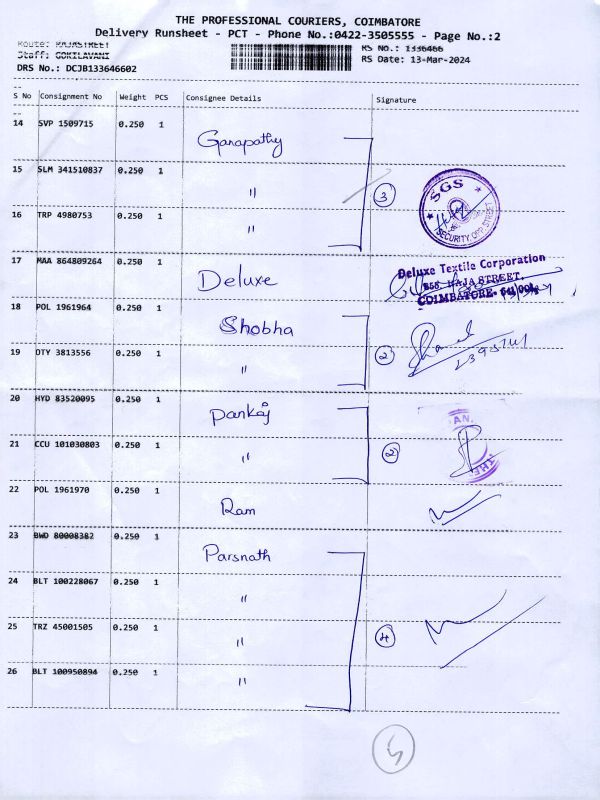 THE PROFESSIONAL COURIERS, COIMBATORE
Delivery Runsheet - PCT - Phone No.:0422-3505555 - Page No.:2
Route: RAJASTREET
RS No.: 1336466
Staff: GOKILAVANI
RS Date: 13-Mar-2024
DRS No.: DCJB133646602
S No Consignment No Weight PCS Consignee Details Signature
14 SVP 1509715 0.250 1 Ganapathy
15 SLM 341510837 0.250 1 "
3
SGS
SECURITY, OPP. STREET
16 TRP 4980753 0.250 1 "
17 MAA 864809264 0.250 1 Deluxe
Deluxe Textile Corporation
RAJA STREET,
COIMBATORE- 641 001
18 POL 1961964 0.250 1 Shobha
19 DTY 3813556 0.250 1 "
2
20 HYD 83520095 0.250 1 Pankaj
AN.
21 CCU 101030803 0.250 1 "
2
THE
22 POL 1961970 0.250 1 Ram
23 BWD 80008382 0.250 1 Parsnath
24 BLT 100228067 0.250 1 "
25 TRZ 45001505 0.250 1 "
4
26 BLT 100950894 0.250 1 "